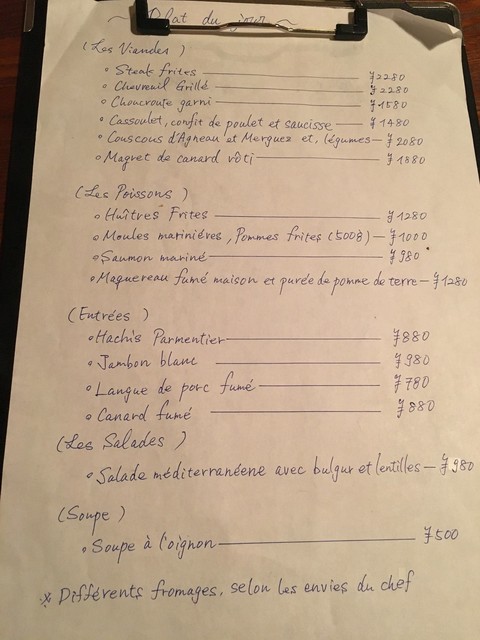 ~ Plat du jour ~
(Les Viandes)
• Steak frites — ¥2280
• Chevreuil Grillé — ¥2280
• Choucroute garni — ¥1580
• Cassoulet, confit de poulet et saucisse — ¥1480
• Couscous d'Agneau et Merguez et, légumes — ¥2080
• Magret de canard rôti — ¥1880
(Les Poissons)
• Huîtres Frites — ¥1280
• Moules marinières, Pommes frites (500g) — ¥1000
• Saumon mariné — ¥980
• Maquereau fumé maison et purée de pomme de terre — ¥1280
(Entrées)
• Hachis Parmentier — ¥880
• Jambon blanc — ¥980
• Langue de porc fumé — ¥780
• Canard fumé — ¥880
(Les Salades)
• Salade méditerranéene avec bulgur et lentilles — ¥980
(Soupe)
• Soupe à l'oignon — ¥500
※ Différents fromages, selon les envies du chef